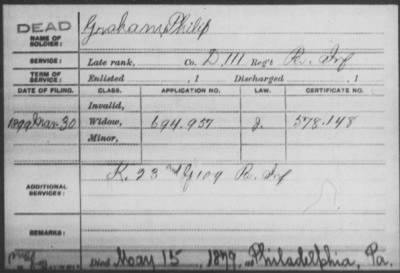 DEAD
NAME OF SOLDIER: Graham, Philip
SERVICE: Late rank, Co. D, 111 Reg't R. Inf
TERM OF SERVICE: Enlisted , 1 Discharged , 1
DATE OF FILING. CLASS. APPLICATION NO. LAW. CERTIFICATE NO.
Invalid,
1899 Mar. 30 Widow, 694.957 J. 578.148
Minor,
ADDITIONAL SERVICES: K. 23rd & 109 R. Inf
REMARKS:
Died May 15, 1879, at Philadelphia, Pa.